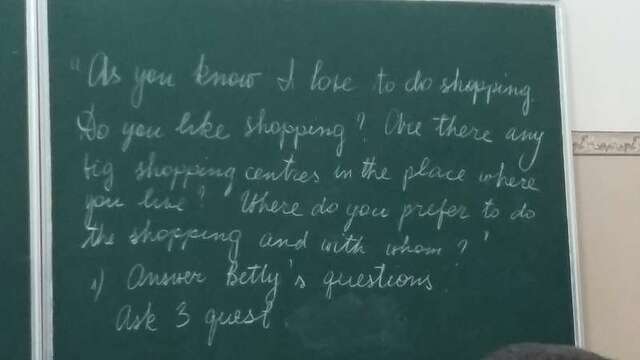 "As you know I love to do shopping.
Do you like shopping? Are there any
big shopping centres in the place where
you live? Where do you prefer to do
the shopping and with whom?"
1) Answer Betty's questions.
Ask 3 quest